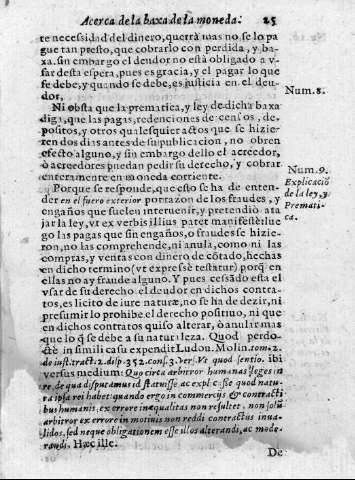 Acerca de la baxa de la moneda. 25
te necessidad del dinero, querrà mas no se lo pa
gue tan presto, que cobrarlo con perdida, y ba-
xa. sin embargo el deudor no està obligado a v-
sar desta espera, pues es gracia, y el pagar lo que
se debe, y quando se debe, es justicia en el deu-
dor,
Num. 8.
Ni obsta que la prematica, y ley de dicha baxa
diga, que las pagas, redenciones de censos, de-
positos, y otros qualesquier actos que se hizie-
ren dos dias antes de su publicacion, no obren
efecto alguno, y sin embargo dello el acreedor,
ò acreedores puedan pedir su derecho, y cobrar
enteramente en moneda corriente.
Num. 9.
Explicaciõ
de la ley, y
Premati-
ca.
Porque se responde, que esto se ha de enten-
der en el fuero exterior por razon de los fraudes, y
engaños que suelen interuenir, y pretendiò ata
jar la ley, vt ex verbis illius patet manifestè: lue
go las pagas que sin engaños, o fraudes se hizie-
ron, no las comprehende, ni anula, como ni las
compras, y ventas con dinero de cõtado, hechas
en dicho termino (vt expressè testatur) porq̃ en
ellas no ay fraude alguno. Y pues cessãdo esta el
vsar de su derecho el deudor en dichos contra-
tos, es licito de iure naturæ, no se ha de dezir, ni
presumir lo prohibe el derecho positiuo, ni que
en dichos contratos quiso alterar, ò anular mas
que lo q̃ se debe a su naturaleza. Quod perdo-
ctè in simili casu expendit Ludou. Molin. tom. 2.
de iust. tract. 2. disp. 352. cons. 3. ver. Vt quod sentio. ibi
versus medium: Quo circa arbitror humanas leges in
re, de qua disputamus id statuisse ac explicasse quod natu-
ra ipsa rei habet: quando ergo in commercijs & contracti
bus humanis, ex errore inæqualitas non resultet, non solũ
arbitror ex errore in motiuis non reddi contractus inua-
lidos, sed neque obligationem esse illos alterandi, ac mode-
randi. Hæc ille.
De